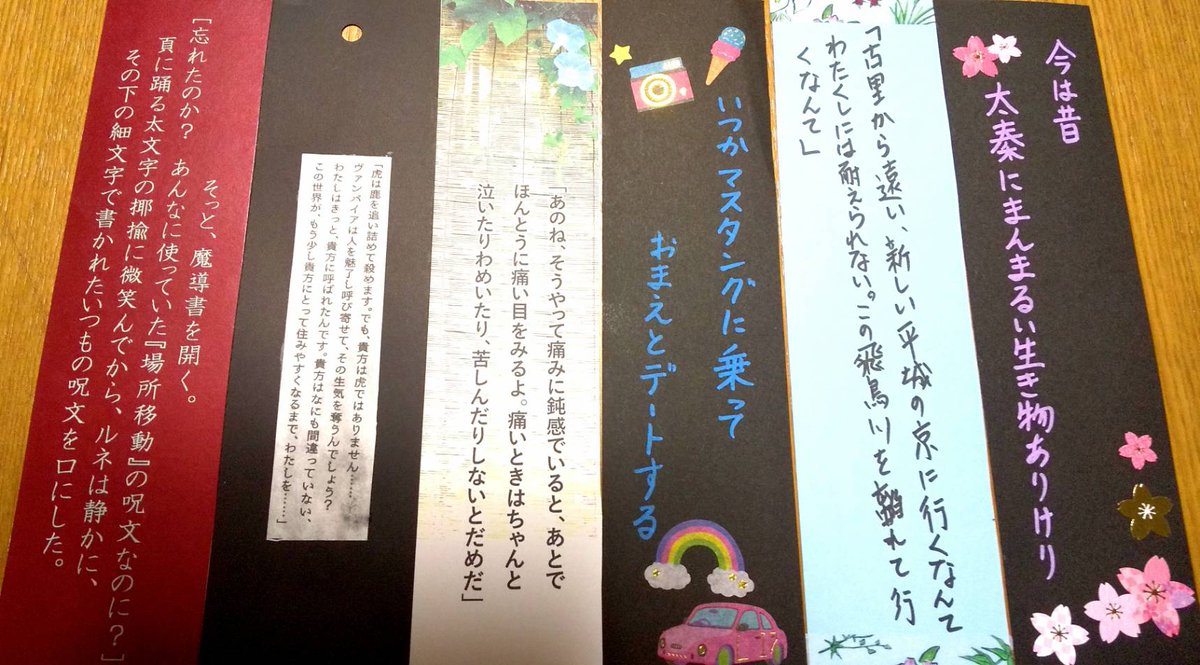 今は昔
太秦にまんまるい生き物ありけり
「古里から遠い、新しい平城の京に行くなんて
わたくしには耐えられない。この飛鳥川を離れて行
くなんて」
いつかマスタングに乗って
おまえとデートする
「あのね、そうやって痛みに鈍感でいると、あとで
ほんとうに痛い目をみるよ。痛いときはちゃんと
泣いたりわめいたり、苦しんだりしないとだめだ」
「虎は鹿を追い詰めて殺めます。でも、貴方は虎ではありません……
ヴァンパイアは人を魅了し呼び寄せて、その生気を奪うんでしょう?
わたしはきっと、貴方に呼ばれたんです。貴方はなにも間違っていない、
この世界が、もう少し貴方にとって住みやすくなるまで、わたしを……」
そっと、魔導書を開く。
［忘れたのか？　あんなに使っていた『場所移動』の呪文なのに？］
頁に踊る太文字の揶揄に微笑んでから、ルネは静かに、
その下の細文字で書かれたいつもの呪文を口にした。